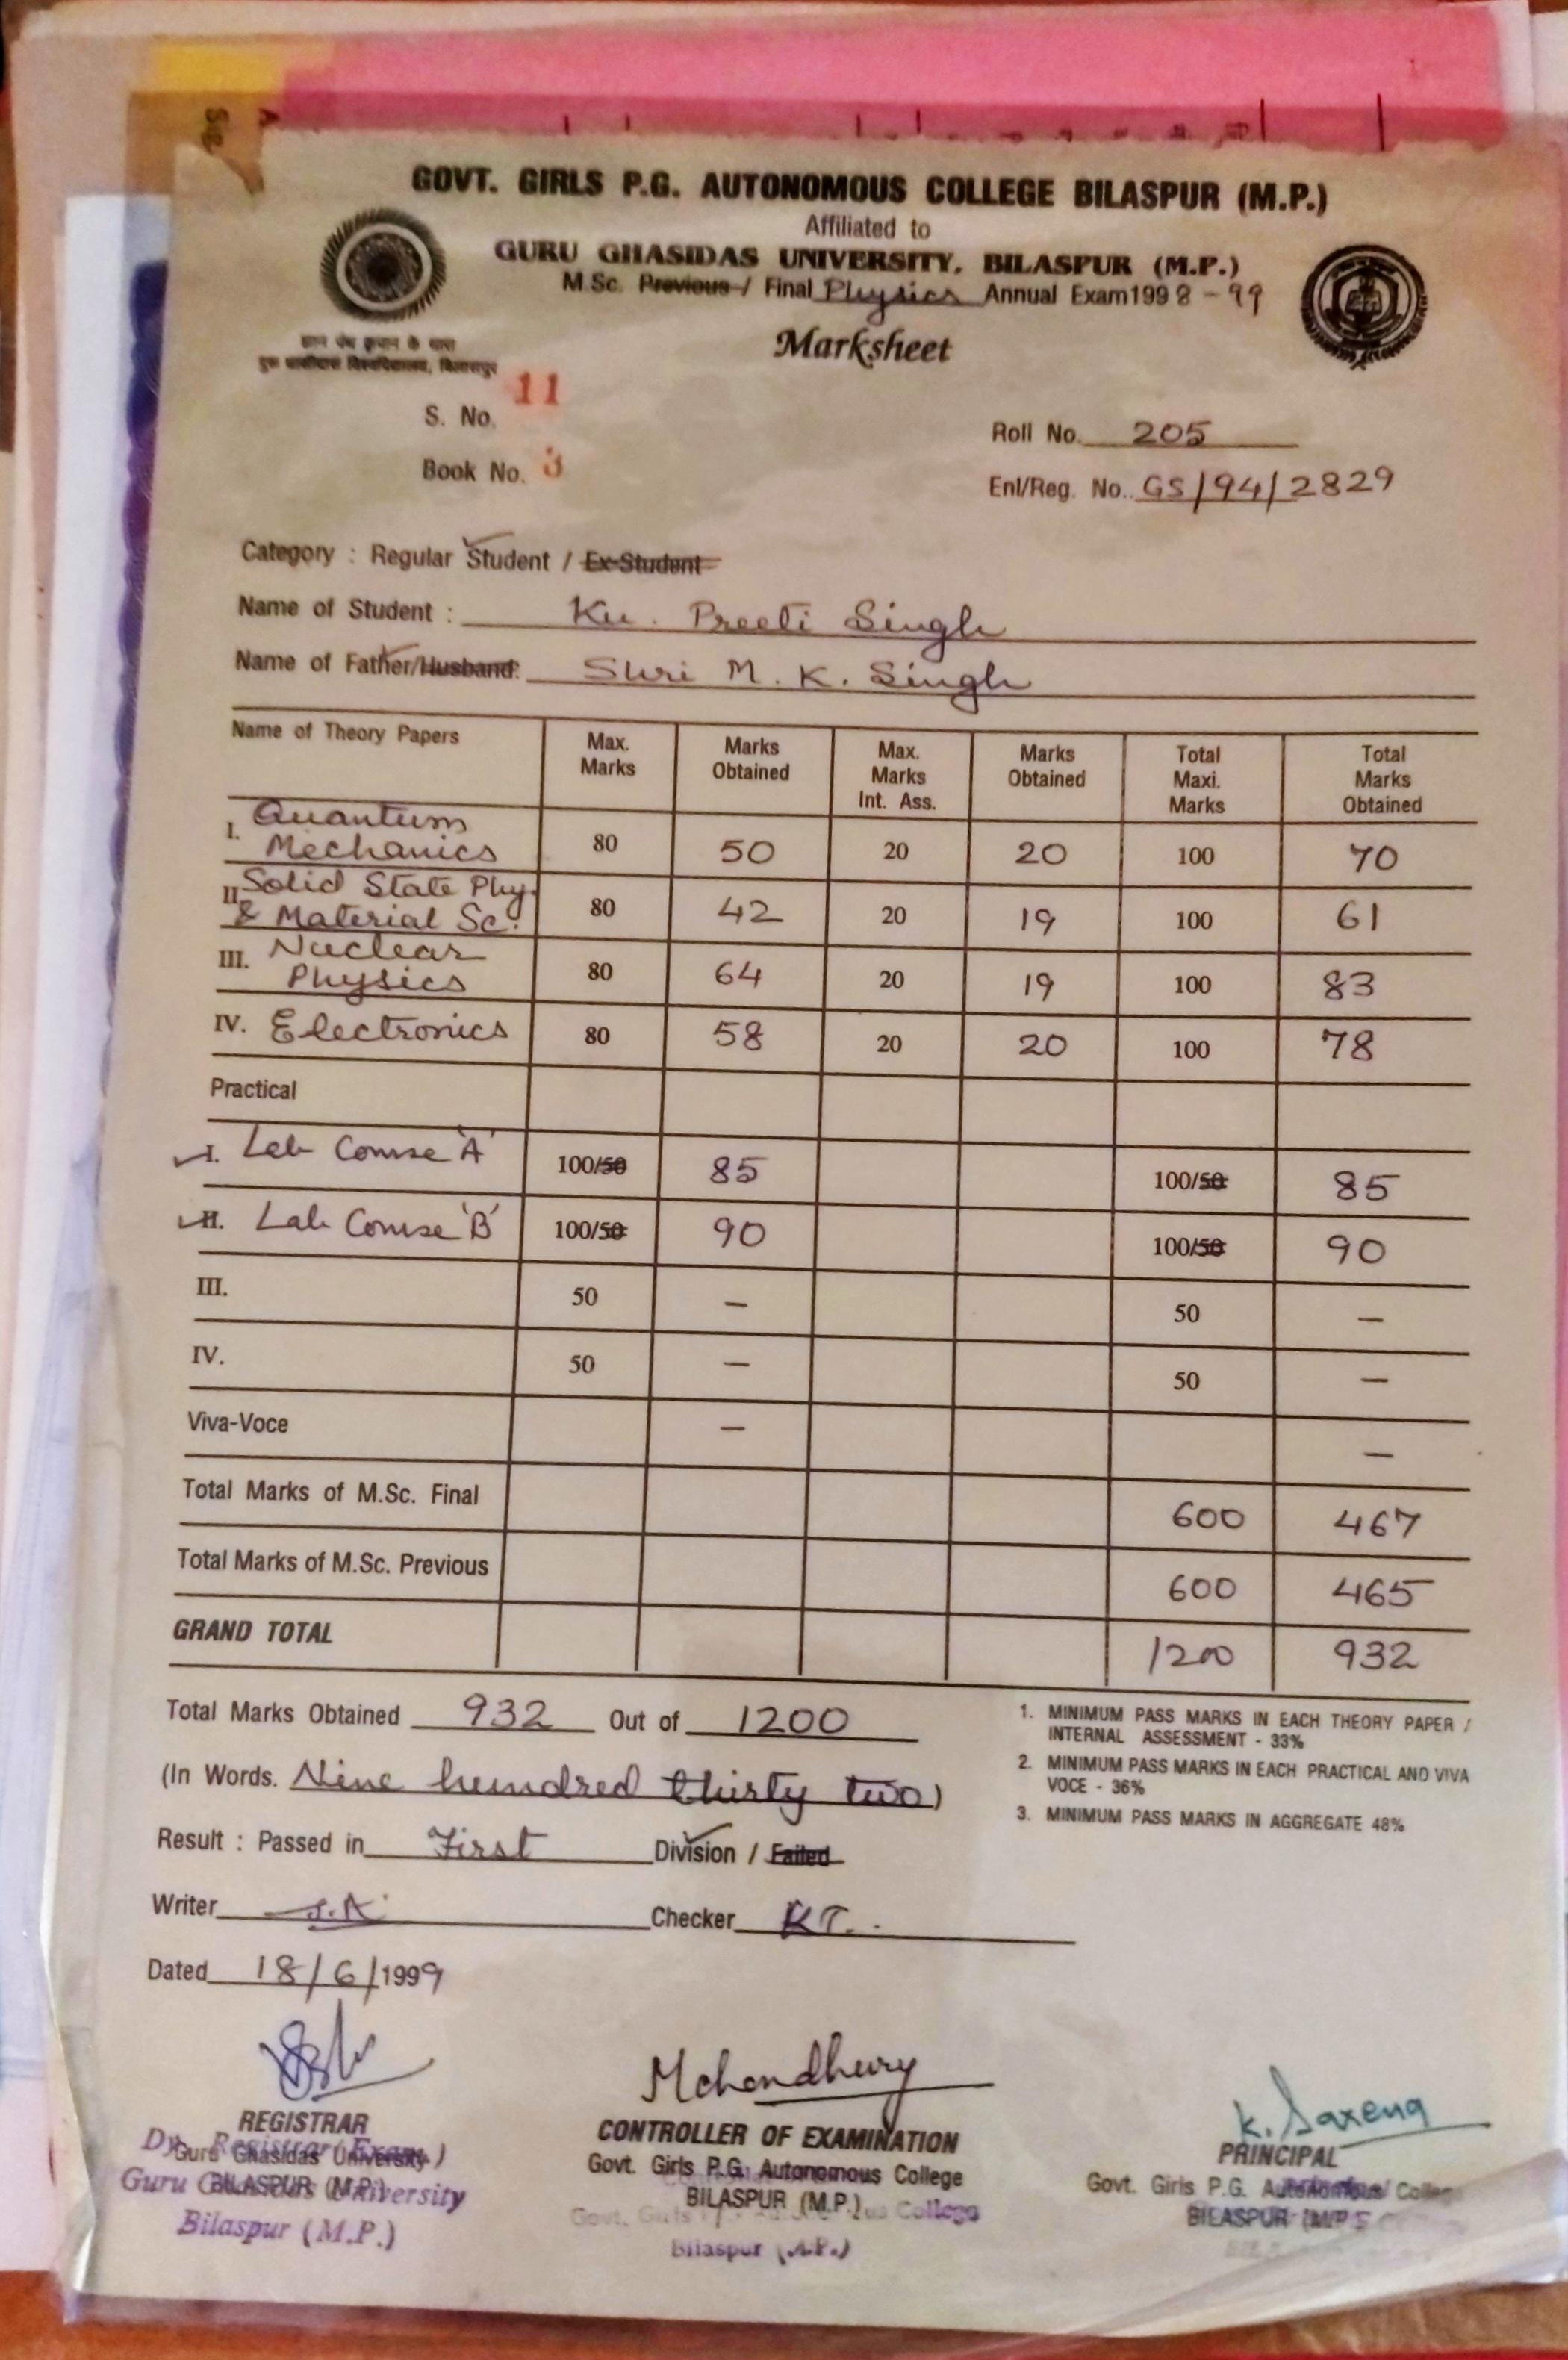 GOVT. GIRLS P.G. AUTONOMOUS COLLEGE BILASPUR (M.P.)
Affiliated to
GURU GHASIDAS UNIVERSITY, BILASPUR (M.P.)
M.Sc. Previous / Final Physics Annual Exam 1998-99
Marksheet
S. No. 11
Book No. 3
Roll No. 205
Enl/Reg. No. GS/94/2829
Category : Regular Student / Ex-Student
Name of Student : Ku. Preeti Singh
Name of Father/Husband: Shri M. K. Singh
Name of Theory Papers Max. Marks Marks Obtained Max. Marks Int. Ass. Marks Obtained Total Maxi. Marks Total Marks Obtained
I. Quantum Mechanics 80 50 20 20 100 70
II. Solid State Phy. & Material Sc. 80 42 20 19 100 61
III. Nuclear Physics 80 64 20 19 100 83
IV. Electronics 80 58 20 20 100 78
Practical
I. Lab Course 'A' 100/50 85 100/50 85
II. Lab Course 'B' 100/50 90 100/50 90
III. 50 — 50 —
IV. 50 — 50 —
Viva-Voce — —
Total Marks of M.Sc. Final 600 467
Total Marks of M.Sc. Previous 600 465
GRAND TOTAL 1200 932
Total Marks Obtained 932 Out of 1200
(In Words. Nine hundred thirty two)
Result : Passed in First Division / Failed
Writer Checker KT.
Dated 18/6/1999
1. MINIMUM PASS MARKS IN EACH THEORY PAPER /
INTERNAL ASSESSMENT - 33%
2. MINIMUM PASS MARKS IN EACH PRACTICAL AND VIVA
VOCE - 36%
3. MINIMUM PASS MARKS IN AGGREGATE 48%
REGISTRAR
Guru Ghasidas University
BILASPUR (M.P.)
Dy. Registrar (Exam.)
Guru Ghasidas University
Bilaspur (M.P.)
MChoudhury
CONTROLLER OF EXAMINATION
Govt. Girls P.G. Autonomous College
BILASPUR (M.P.)
College
Bilaspur (M.P.)
K. Saxena
PRINCIPAL
Govt. Girls P.G. Autonomous College
BILASPUR (M.P.)